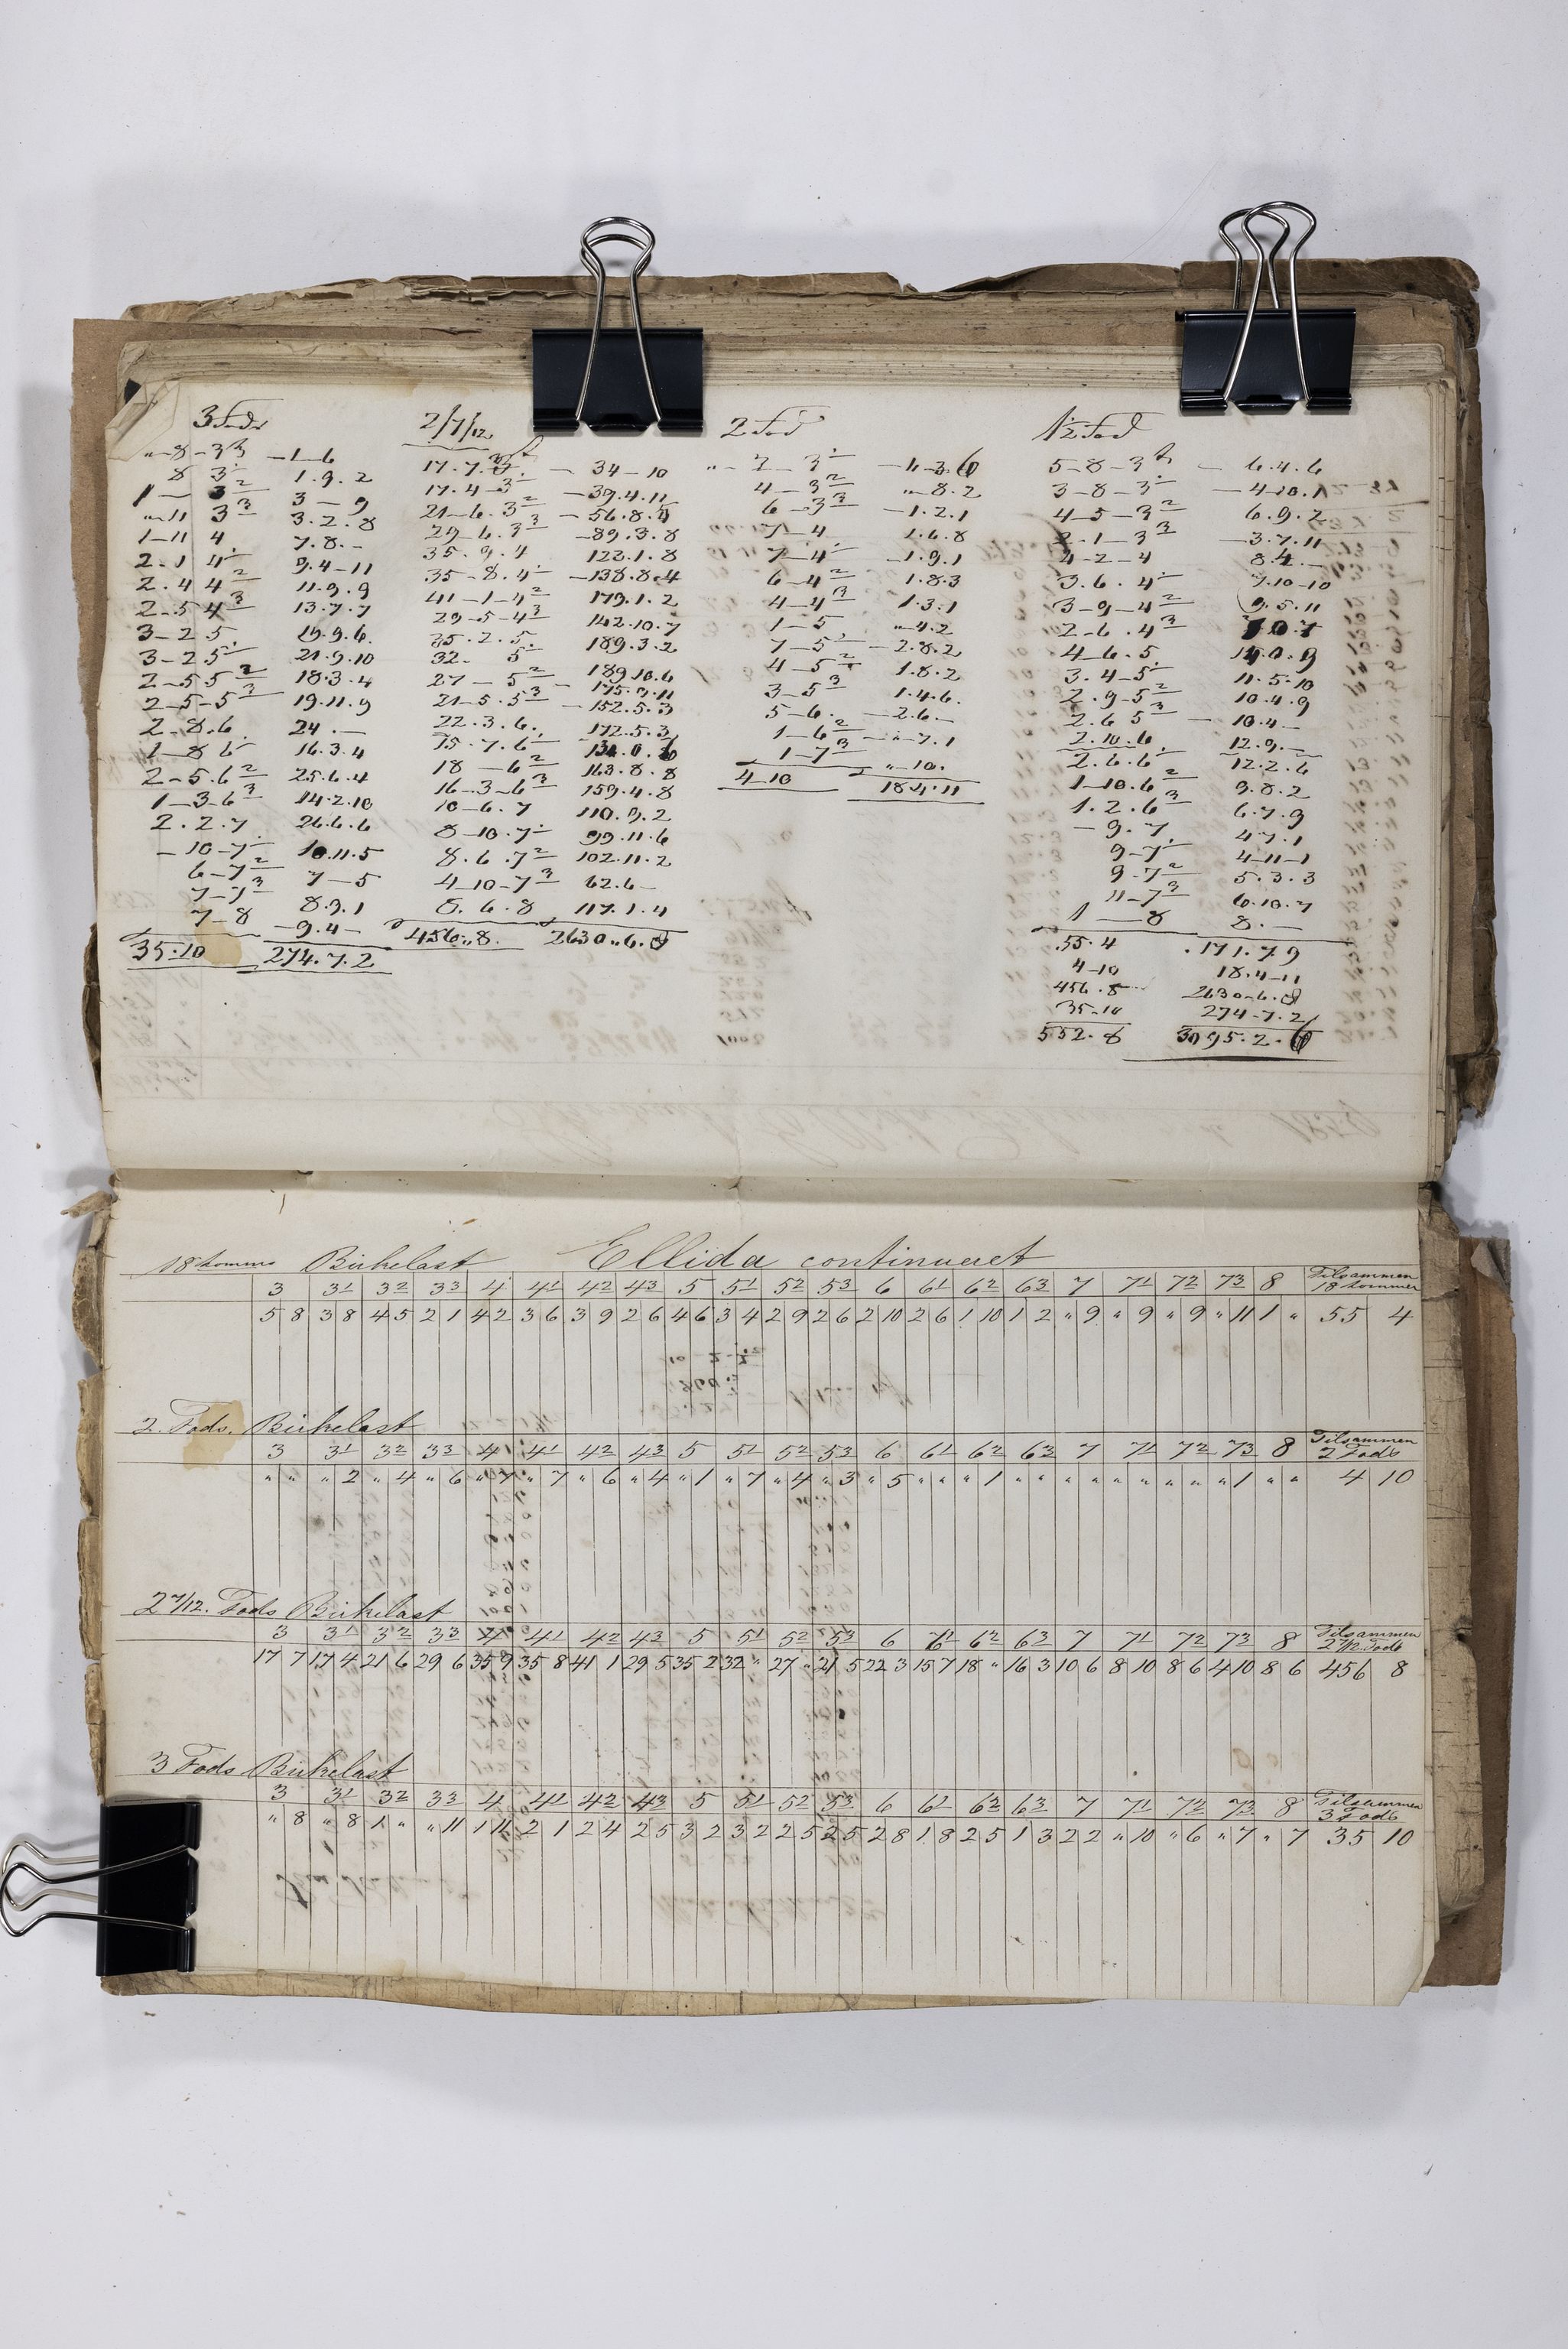 3 Fods 2/7/12 2 Fod 1½ Fod
"-8-3 -1-6 17.7.3 - 34-10 "-2-3¹ -"-3.6 5-8-3 - 6.4.6
8 3¹ 1.9.2 17.4-3¹ -39.4.11 4-3² "-8.2 3-8-3¹ -4-10.1
1-3² 3-9 21-6.3² -56.8.4 6-3³ -1.2.1 4-5-3² 6.9.2
"-11 3³ 3.2.8 29-6.3³ -89.3.8 7-4 1.6.8 2-1-3³ -3.7.11
1-11 4 7.8.- 35.9.4 122.1.8 7-4¹ -1.9.1 4-2-4 8.4.-
2-1 4¹ 9.4-11 35-8.4¹ -138.8.4 6-4² 1.8.3 3.6.4¹ 7.10-10
2.4 4² 11.9.9 41-1-4² 179.1.2 4-4³ 1.3.1 3-9-4² 9.5.11
2-5 4³ 13.7.7 29-5-4³ 142.10.7 1-5 "-4.2 2-6.4³
3-2 5 19.9.6. 35.2.5. 189.3.2 7-5¹ -2.8.2 4-6.5
3-2 5¹ 21.9.10 32- 5¹ 189.10.6 4-5² 1.8.2 3.4-5¹ 11.5.10
2-5 5² 18.3.4 27-5² - 175.9.11 3-5³ 1.4.6. 2.9-5² 10.4.9
2-5-5³ 19.11.9 21-5.5³ -152.5.3 5-6. -2.6- 2.6 5³ - 10.4-
2-8.6 24.- 22.3.6. 172.5.3 1-6² -"-7.1 2.10.6. 12.9.-
1-8 6¹ 16.3.4 15.7.6¹ 1-7³ "-10. 2.6.6¹ 12.2.6
2-5.6² 25.6.4 18-6² 163.8.8 4-10 18.4.11 1-10.6² 9.8.2
1-3-6³ 14.2.10 16-3-6³ 159.4.8 1.2.6³ 6.7.9
2.2.7 26.6.6 10-6.7 110.9.2 -9.7 4.7.1
-10-7¹ 10.11.5 8-10.7¹ 99.11.6 9-7¹ 4-11-1
6-7² 7-5 8.6.7² 102.11.2 9-7² 5.3.3
7-7³ 8.9.1 4-10-7³ 62.6- 11-7³ 6.10.7
7-8 -9.4- 8.6.8 117.1.4 1-8 8.-
35.10 274.7.2 456..8. 2630..6.8 55.4 .171.7 9
4-10 18.4-11
456.8 2630-6.8
35-10 274-7.2
552.8 3095.2.
18 tommers Birkelast Ellida continueret
3 3¹ 3² 3³ 4 4¹ 4² 4³ 5 5¹ 5² 5³ 6 6¹ 6² 6³ 7 7¹ 7² 7³ 8 Tilsammen 18 tommer
5 8 3 8 4 5 2 1 4 2 3 6 3 9 2 6 4 6 3 4 2 9 2 6 2 10 2 6 1 10 1 2 " 9 " 9 " 9 " 11 1 " 55 4
2. Fods. Birkelast
3 3¹ 3² 3³ 4 4¹ 4² 4³ 5 5¹ 5² 5³ 6 6¹ 6² 6³ 7 7¹ 7² 7³ 8 Tilsammen 2 Fods
" " " 2 " 4 " 6 " 7 " 7 " 6 " 4 " 1 " 7 " 4 " 3 " 5 " " " 1 " " " " " " " " " 1 " " 4 10
2 7/12. Fods Birkelast
3 3¹ 3² 3³ 4 4¹ 4² 4³ 5 5¹ 5² 5³ 6 6¹ 6² 6³ 7 7¹ 7² 7³ 8 Tilsammen 2 7/12 Fods
17 7 17 4 21 6 29 6 35 9 35 8 41 1 29 5 35 2 32 " 27 " 21 5 22 3 15 7 18 " 16 3 10 6 8 10 8 6 4 10 8 6 456 8
3 Fods Birkelast
3 3¹ 3² 3³ 4 4¹ 4² 4³ 5 5¹ 5² 5³ 6 6¹ 6² 6³ 7 7¹ 7² 7³ 8 Tilsammen 3 Fods
" 8 " 8 1 " " 11 1 11 2 1 2 4 2 5 3 2 3 2 2 5 2 5 2 8 1 8 2 5 1 3 2 2 " 10 " 6 " 7 " 7 35 10